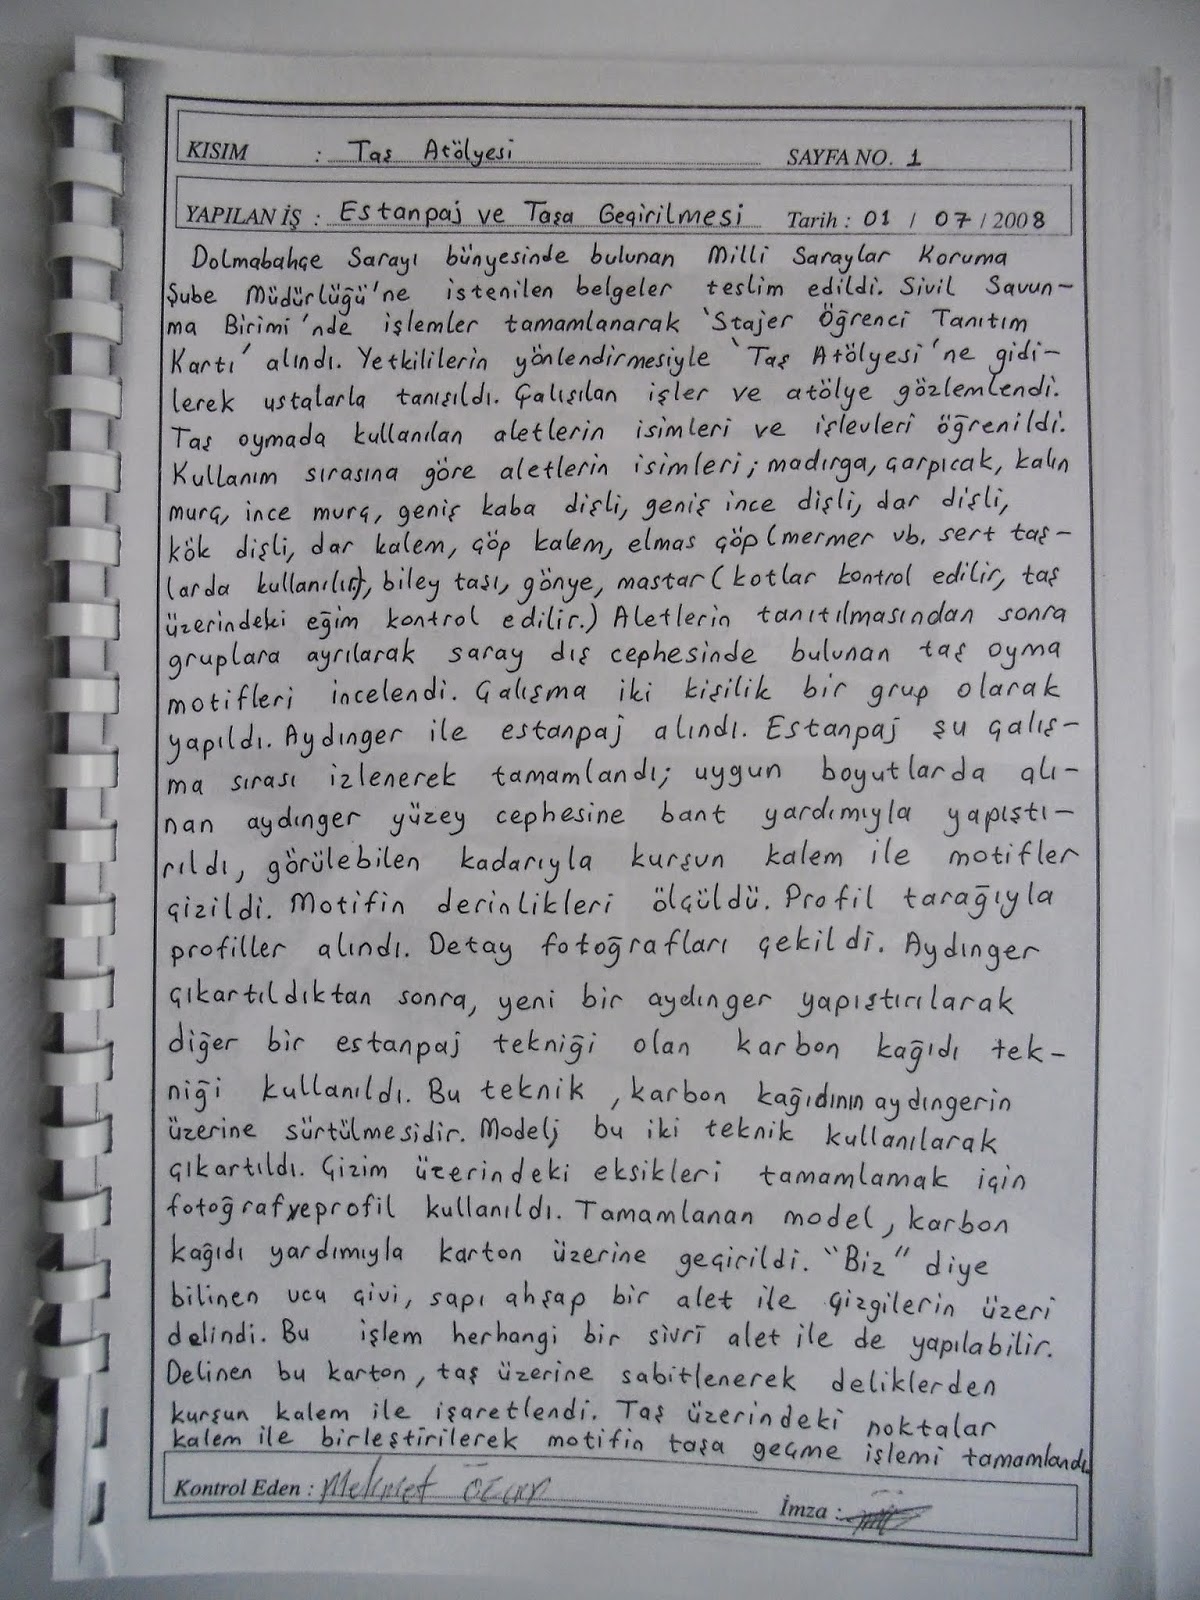 KISIM : Taş Atölyesi SAYFA NO. 1
YAPILAN İŞ : Estanpaj ve Taşa Geçirilmesi Tarih : 01 / 07 / 2008
Dolmabahçe Sarayı bünyesinde bulunan Milli Saraylar Koruma
Şube Müdürlüğü'ne istenilen belgeler teslim edildi. Sivil Savun-
ma Birimi'nde işlemler tamamlanarak 'Stajer Öğrenci Tanıtım
Kartı' alındı. Yetkililerin yönlendirmesiyle 'Taş Atölyesi'ne gidi-
lerek ustalarla tanışıldı. Çalışılan işler ve atölye gözlemlendi.
Taş oymada kullanılan aletlerin isimleri ve işlevleri öğrenildi.
Kullanım sırasına göre aletlerin isimleri; madırga, çarpıcak, kalın
murç, ince murç, geniş kaba dişli, geniş ince dişli, dar dişli,
kök dişli, dar kalem, çöp kalem, elmas çöp (mermer vb. sert taş-
larda kullanılır), biley taşı, gönye, mastar (kotlar kontrol edilir, taş
üzerindeki eğim kontrol edilir.) Aletlerin tanıtılmasından sonra
gruplara ayrılarak saray dış cephesinde bulunan taş oyma
motifleri incelendi. Çalışma iki kişilik bir grup olarak
yapıldı. Aydınger ile estanpaj alındı. Estanpaj şu çalış-
ma sırası izlenerek tamamlandı; uygun boyutlarda alı-
nan aydınger yüzey cephesine bant yardımıyla yapıştı-
rıldı, görülebilen kadarıyla kurşun kalem ile motifler
çizildi. Motifin derinlikleri ölçüldü. Profil tarağıyla
profiller alındı. Detay fotoğrafları çekildi. Aydınger
çıkartıldıktan sonra, yeni bir aydınger yapıştırılarak
diğer bir estanpaj tekniği olan karbon kağıdı tek-
niği kullanıldı. Bu teknik, karbon kağıdının aydıngerin
üzerine sürtülmesidir. Model, bu iki teknik kullanılarak
çıkartıldı. Çizim üzerindeki eksikleri tamamlamak için
fotoğraf ve profil kullanıldı. Tamamlanan model, karbon
kağıdı yardımıyla karton üzerine geçirildi. "Biz" diye
bilinen ucu çivi, sapı ahşap bir alet ile çizgilerin üzeri
delindi. Bu işlem herhangi bir sivri alet ile de yapılabilir.
Delinen bu karton, taş üzerine sabitlenerek deliklerden
kurşun kalem ile işaretlendi. Taş üzerindeki noktalar
kalem ile birleştirilerek motifin taşa geçme işlemi tamamlandı.
Kontrol Eden : Mehmet Özan
İmza :